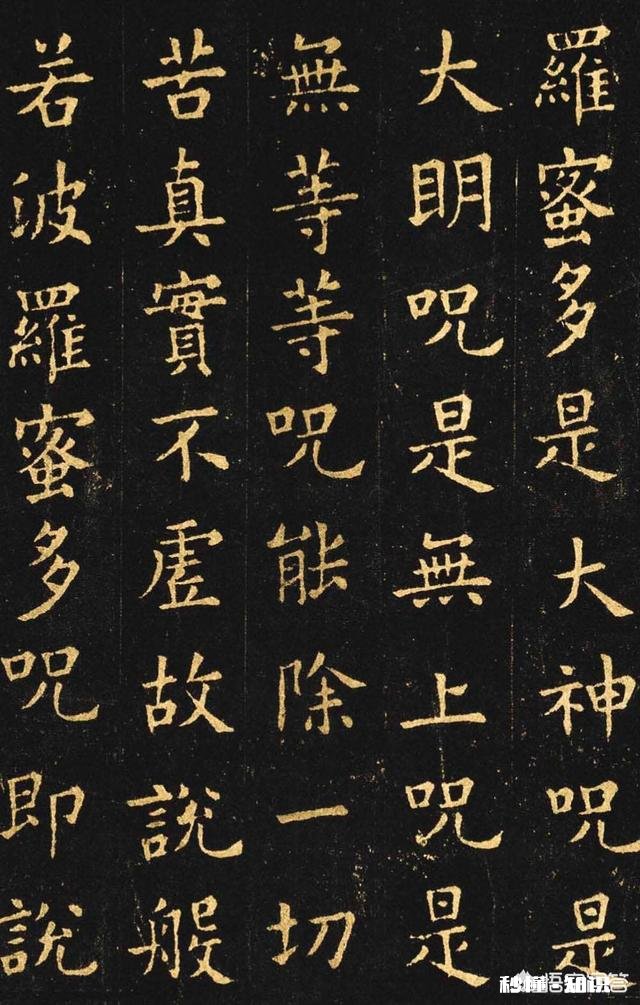 羅蜜多是大神呪是
大明呪是無上呪是
無等等呪能除一切
苦真實不虛故說般
若波羅蜜多呪即說
秒懂·知识